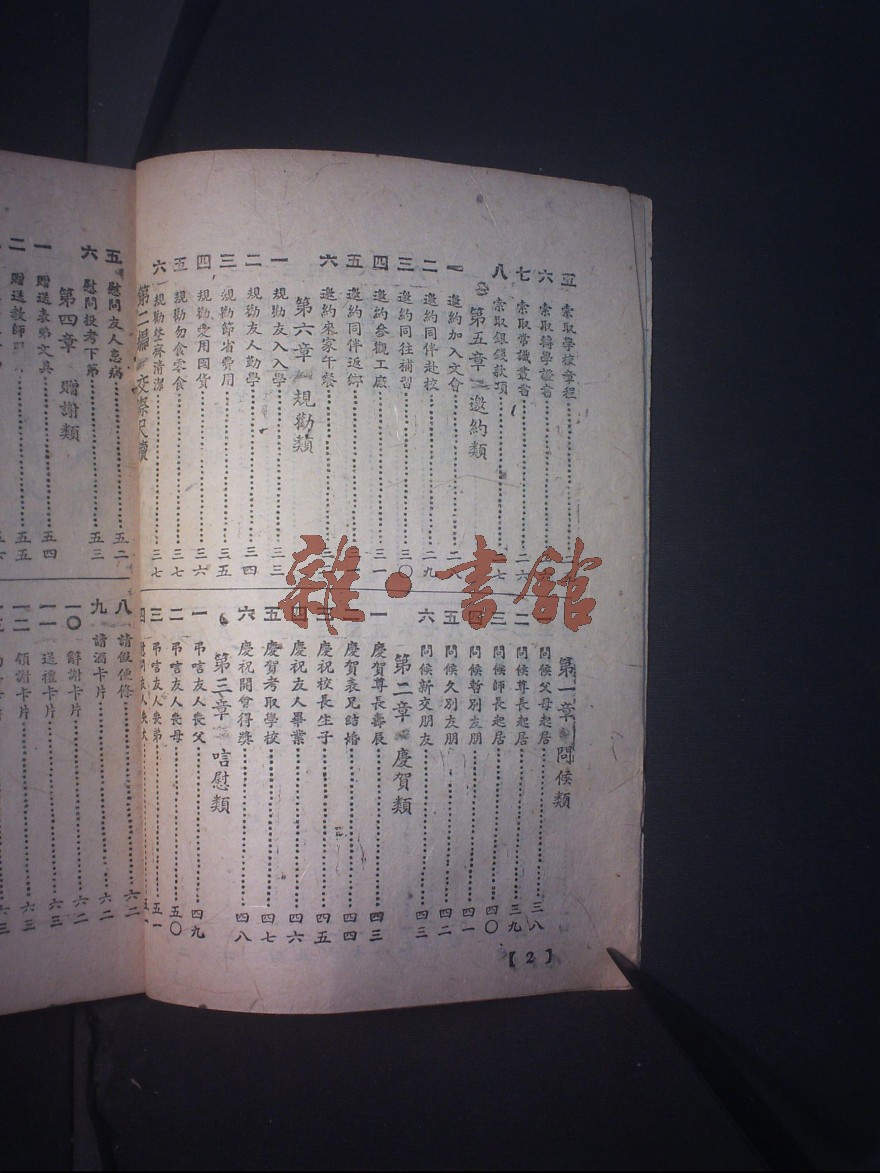 五 索取學校章程
六 索取轉學證書
七 索取常識叢書 二六
八 索取銀錢款項 二七
第五章 邀約類
一 邀約加入文會 二八
二 邀約同伴赴校 二九
三 邀約同往補習 三〇
四 邀約參觀工廠 三一
五 邀約同伴返鄉
六 邀約來家午餐
第六章 規勸類
一 規勸友人入學 三三
二 規勸友人勤學 三四
三 規勸節省費用 三五
四 規勸愛用國貨 三六
五 規勸勿食零食 三七
六 規勸整齊清潔 三七
第二編 交際尺牘
第一章 問候類
一 問候父母起居 三八
二 問候尊長起居 三九
三 問候師長起居 四〇
四 問候暫別友朋 四一
五 問候久別友朋 四二
六 問候新交朋友 四三
第二章 慶賀類
一 慶賀尊長壽辰 四三
二 慶賀表兄結婚 四四
三 慶祝校長生子 四五
四 慶祝友人畢業 四六
五 慶賀考取學校 四七
六 慶祝開會得獎 四八
第三章 唁慰類
一 弔唁友人喪父 四九
二 弔唁友人喪母 五〇
三 弔唁友人喪弟 五一
四 慰問友人失火
【2】
五 慰問友人患病 五二
六 慰問投考下第 五三
第四章 贈謝類
一 贈送表弟文具 五四
二 贈送教師 五五
八 請假便條 六二
九 請酒卡片 六二
一〇 辭謝卡片 六二
一一 送禮卡片 六三
一二 領謝卡片 六三
雜·書館